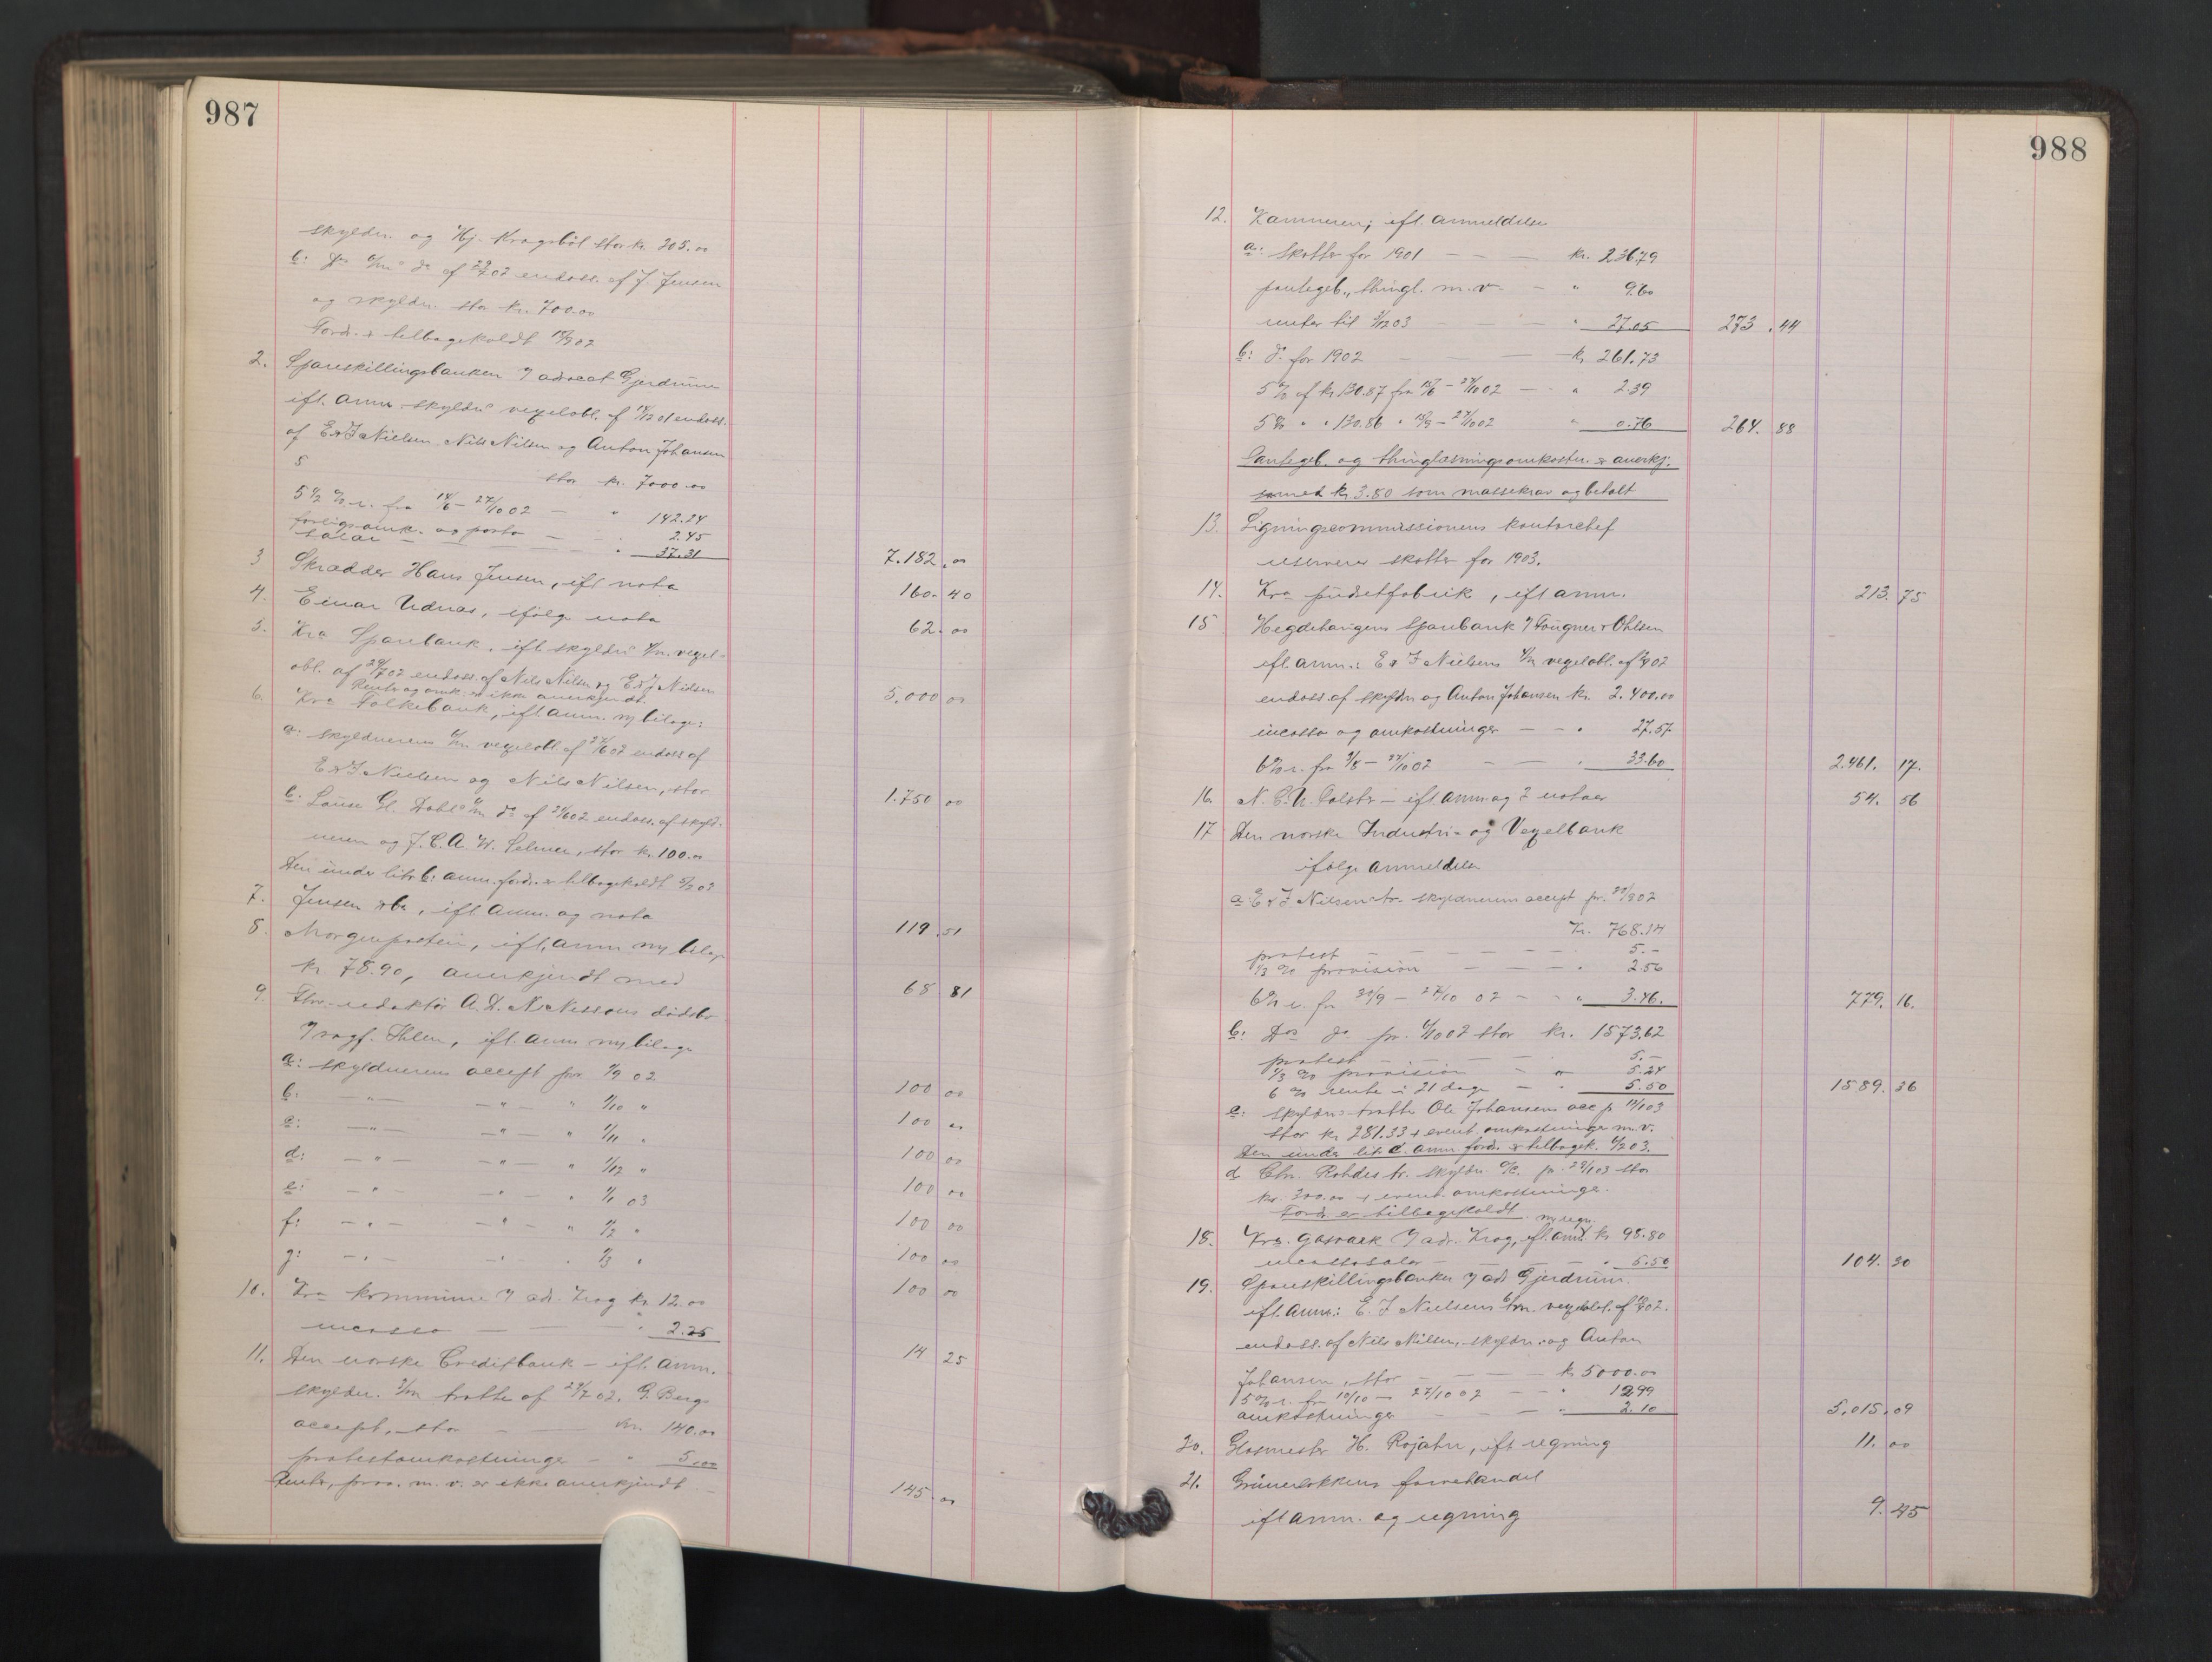 987
skyldn. og Hj. Kragsböl stor kr. 305.00
b: Do 6/m do af 29/7 02 endoss. af J. Jensen
og skyldn. stor kr. 700.00
Fordr. er tilbagekaldt 02
2. Spareskillingsbanken v/ advocat Gjerdrum
ifl. anm. skyldns vexelobl. af 18/12 01 endoss.
af E & J Nielsen, Nils Nilsen og Anton Johansen
stor kr. 7000.00
5 1/2 % r. fra 18/6 - 27/10 02 — " 142.24
forligsomk. og porto — " 2.45
Salær — " 37.31 7.182.00
3 Skrædder Hans Jensen, ifl nota 160.40
4. Einar Udnæs, ifølge nota 62.00
5. Kra Sparebank, ifl skyldns 4/m. vexel-
obl. af 29/7 02 endoss. af Nils Nilsen og E & J Nilsen 5,000 00
Renter og omk. er ikke anerkjendt.
6. Kra Folkebank, ifl. anm. m/ bilage:
a: skyldnerens 6/m vexelobl. af 27/6 02 endoss af
E & J Nielsen og Nils Nilsen, stor 1.750 00
b: Louise Gl. Dahls 6/m do af 02 endoss. af skyld-
neren og J. C. A. W. Selmer, stor kr. 100.00
Den under litr b: anm. fordr. er tilbagekaldt 5/2 03
7. Jensen & Co, ifl. anm. og nota 119.51
8. Morgenposten, ifl. anm m/ bilag
kr 78.90, anerkjendt med 68 81
9. Fhv. redaktør A. D. N. Nissens dødsbo
v/ sagf. Ihlen, ifl. anm m/ bilage
a: skyldnerens accept pr. 1/9 02 100 00
b: — " — — " — " 1/10 " 100 00
c: — " — — " — " 1/11 " 100 00
d: — " — — " — " 1/12 " 100 00
e: — " — — " — " 1/1 03 100 00
f: — " — — " — " 1/2 " 100 00
g: — " — — " — " 1/3 " 100 00
10. Kra kommune v/ adv. Krag kr. 12.00
incasso — " 2.25 14 25
11. Den norske Creditbank - ifl. anm.
skyldn. 3/m tratte af 29/7 02, G. Bergs
accept, stor — kr. 140.00
protestomkostninger — " 5.00
Renter, prov. m. v. er ikke anerkjendt. 145.00
988
12. Kæmneren; ifl. anmeldelse
a: skatter for 1901 — kr. 236.79
pantegeb., thingl. m. v. — " 9.60
renter til 03 — " 27.05 273.44
b: do for 1902 — kr. 261.73
5 % af kr 130.87 fra 15/6 - 27/10 02 — " 2.39
5 % " " 130.86 " 15/9 - 27/10 02 " 0.76 264.88
Pantegeb. og thinglæsningsomkostn. er anerkj.
med kr 3.80 som massekrav og betalt
13. Ligningscommissionens kontorchef
reserverer skatter for 1903.
14. Kra pudretfabrik, ifl anm. 213.75
15 Hegdehaugens Sparebank v/ Fougner & Ohlsen
ifl. anm.: E & J Nielsens vexelobl. af 02
endoss. af skyldn og Anton Johansen kr. 2.400.00
incasso og omkostninger — " 27.57
6 % r. fra 3/8 - 27/10 02 — " 33.60 2.461.17.
16. N. C. N. Galster - ifl. anm og 2 notaer 54.56
17 Den norske Industri- og Vexelbank
ifølge anmeldelse
a: E & J Nilsens tr. skyldnerens accept pr. 02
Kr. 768.14
protest — 5.-
1/3 % provision — " 2.56
6 % r. fra 30/9 - 27/10 02 — " 3.46. 779.16.
b: Do do pr. 02 stor kr. 1573.62
protest — 5.-
1/3 % provision — " 5.24
6 % rente i 21 dage — " 5.50 1589.36
c: skyldns tratte Ole Johansens acc p. 03
stor kr 281.33 + event. omkostninger m. v.
Den under litr c. anm fordr. er tilbagek. 6/2 03.
d Chr. Rohdes tr. skyldn. a/c. pr. 29/1 03 stor
kr. 300.00 + event. omkostninger.
Fordr er tilbagekaldt
18. Kra. Gasværk v/ adv. Krag, ifl. anm m/ regn. kr 98.80
incassosalær — " 5.50 104.30
19. Spareskillingsbanken v/ adv Gjerdrum.
ifl. anm.: E. J Nielsens 6/m. vexelobl. af 02.
endoss. af Nils Nilsen, skyldn. og Anton
Johansen, stor — kr 5000.00
5 % r. fra 10/10 — 27/10 02 — " 12.99
omkostninger — " 2.10 5.015.09
20. Glasmester H. Rojahn, ifl regning 11.00
21. Grünerløkkens farvehandel
ifl anm. og regning 9.45